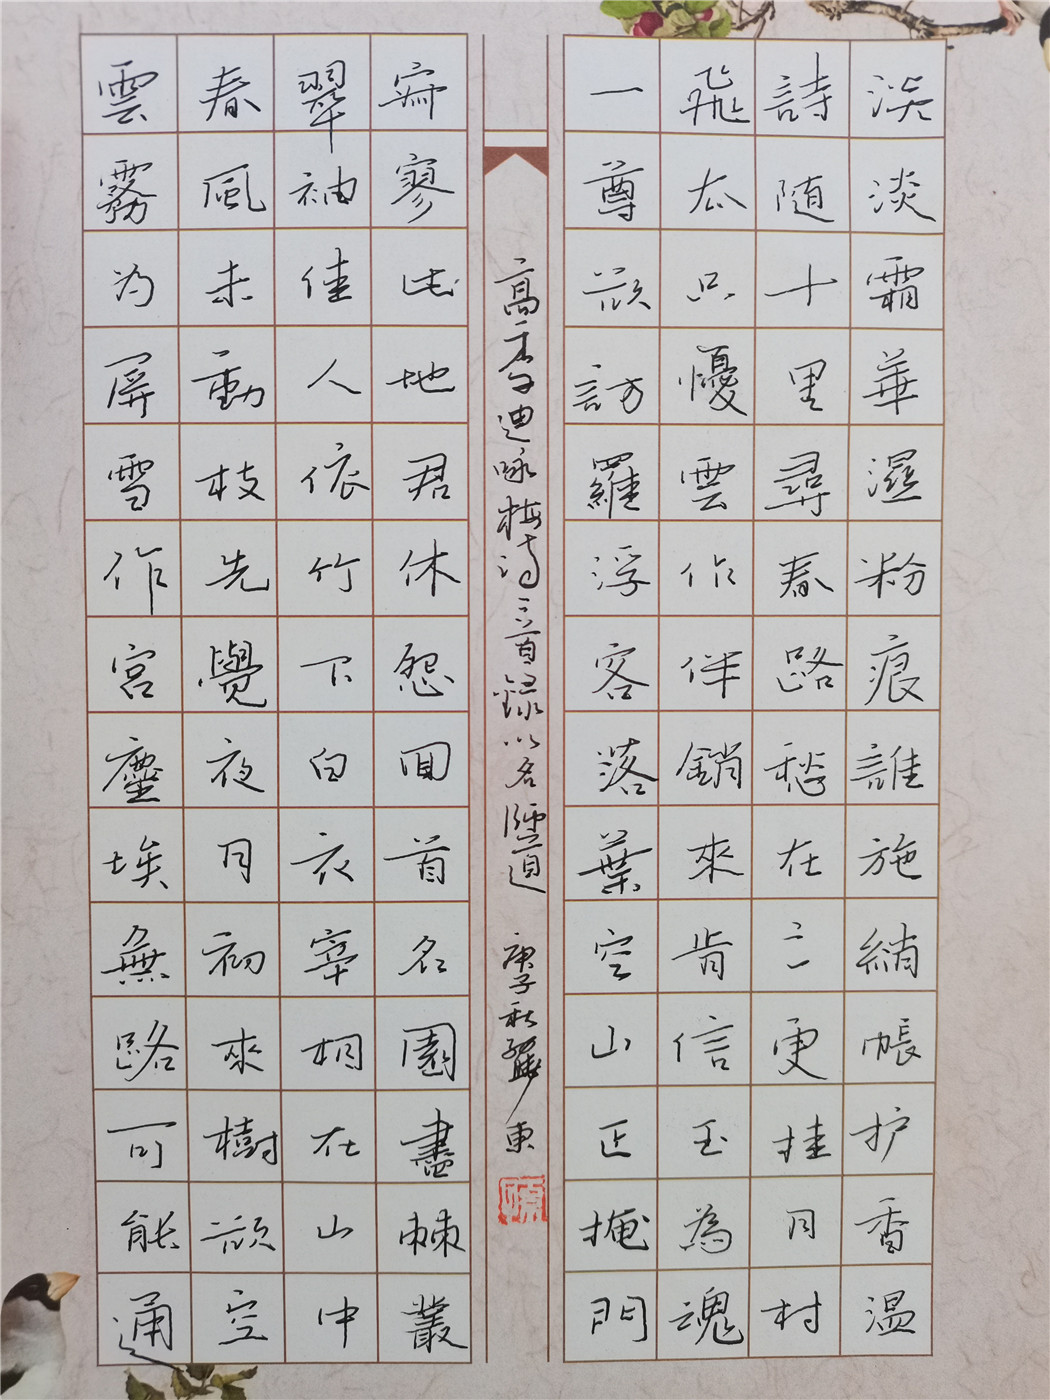 淡淡霜華濕粉痕誰施綃帳护香温
詩随十里尋春路愁在三更挂月村
飛去只憂雲作伴銷來肯信玉為魂
一尊欲訪羅浮客落葉空山正掩門
雲霧为屏雪作宮塵埃無路可能通
春風未動枝先覺夜月初來樹欲空
翠袖佳人依竹下白衣宰相在山中
寂寥此地君休怨回首名園盡棘叢
高季迪咏梅诗三首録以名 道 庚子秋 東